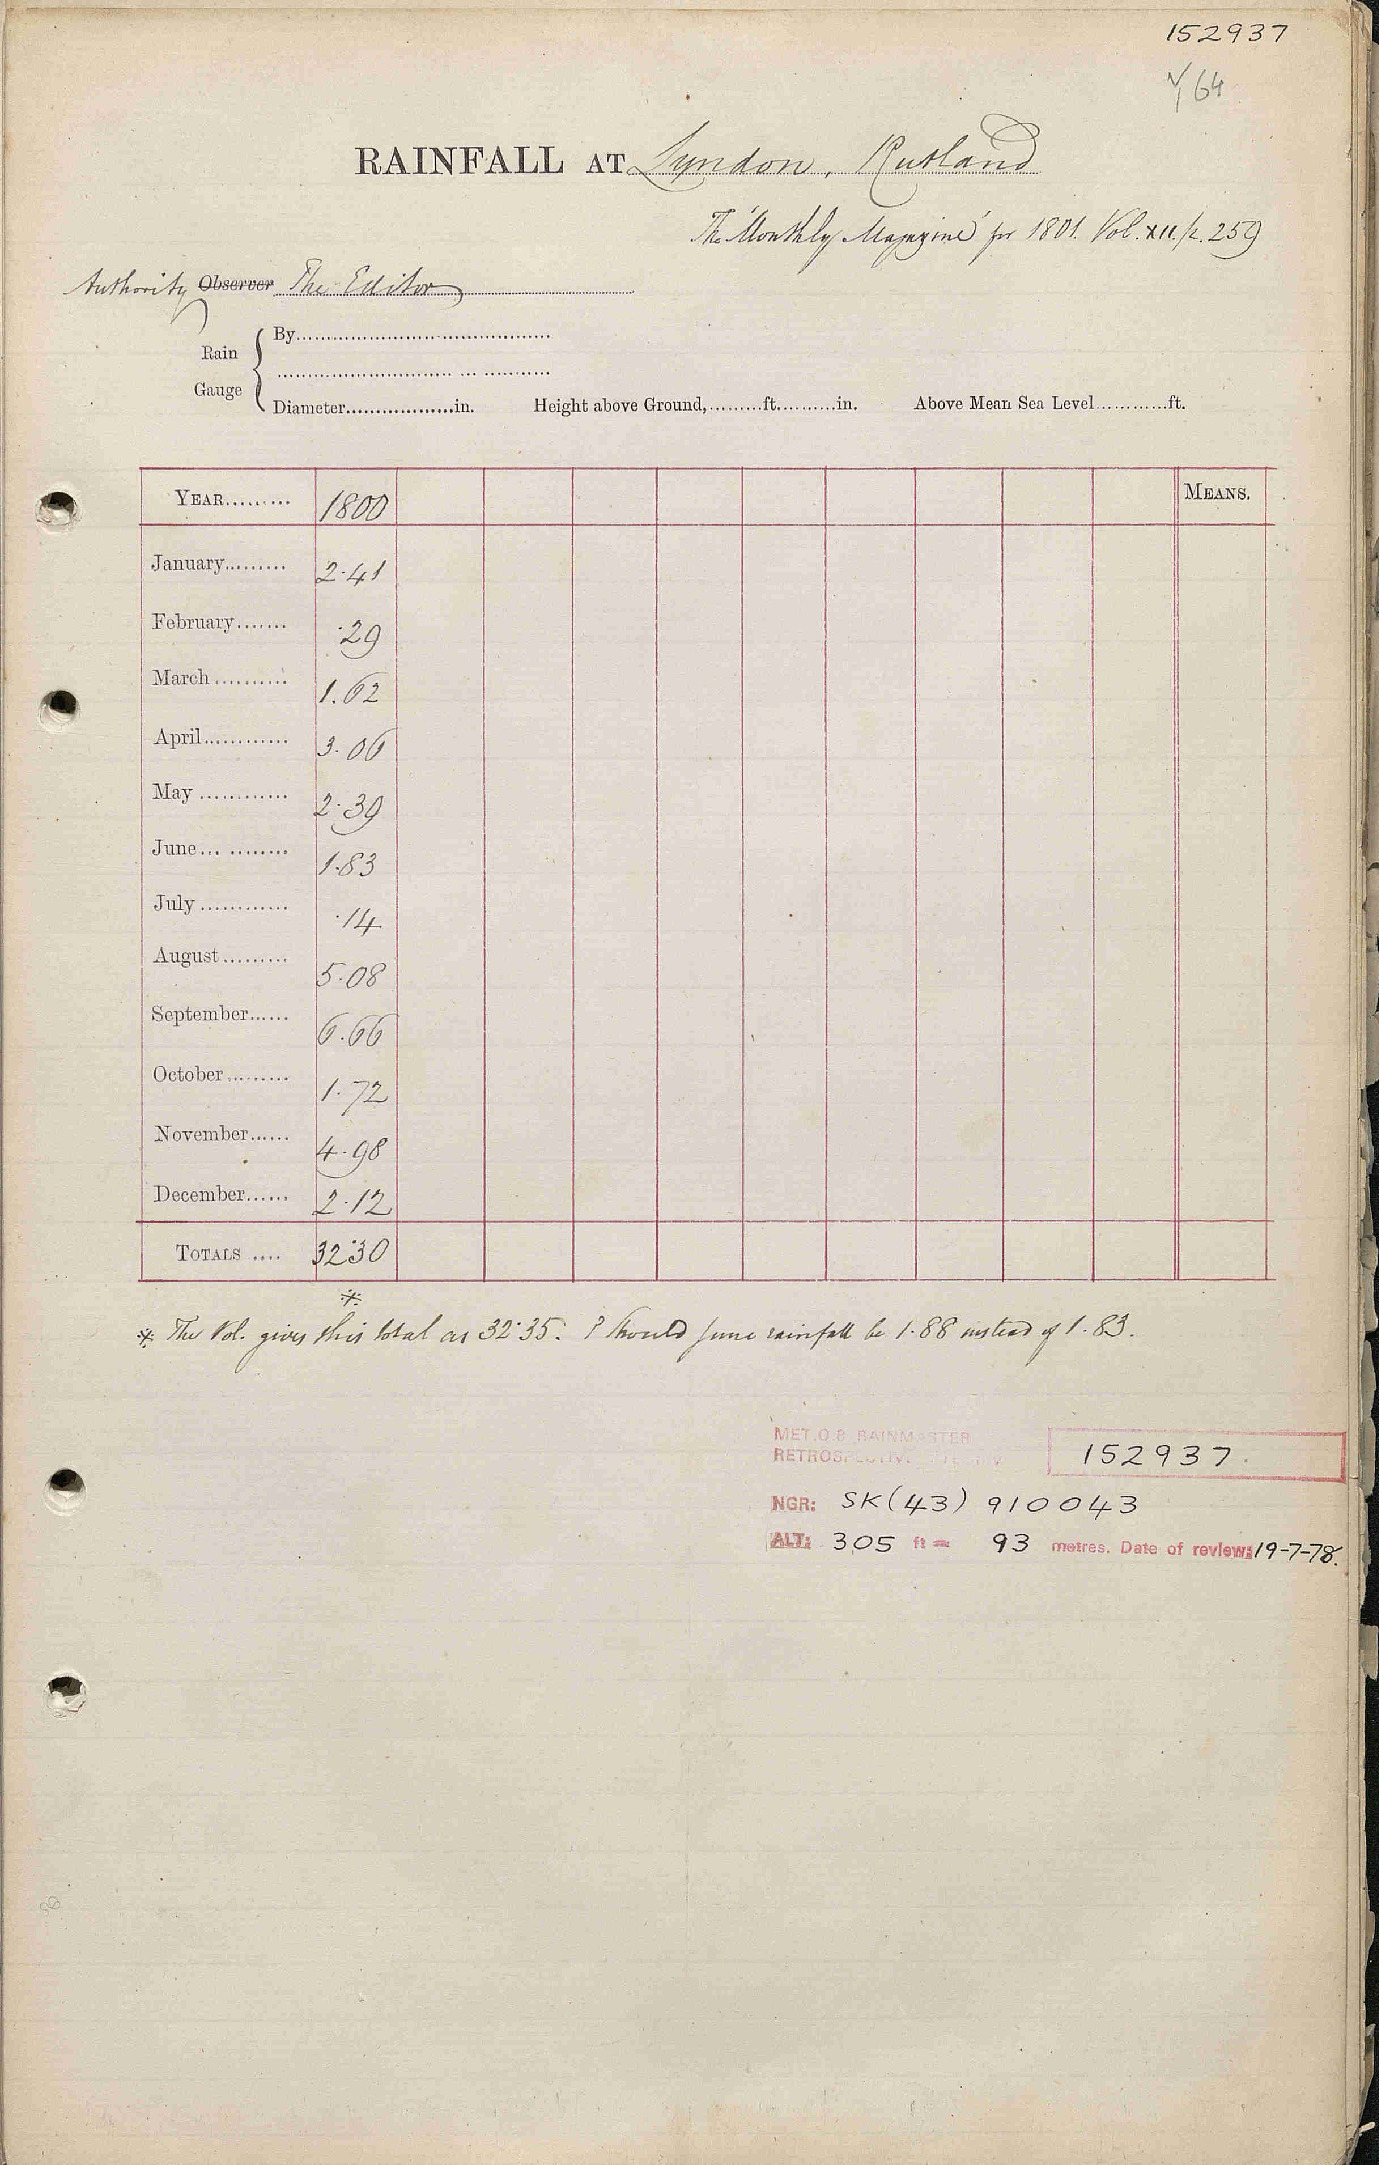 152937
64
RAINFALL AT Lyndon, Rutland
The 'Monthly Magazine' for 1801. Vol. XII. p. 259
Authority Observer The Editor
Rain Gauge
By
Diameter in. Height above Ground, ft. in. Above Mean Sea Level ft.
YEAR 1800 MEANS.
January 2.41
February .29
March 1.62
April 3.06
May 2.39
June 1.83
July .14
August 5.08
September 6.66
October 1.72
November 4.98
December 2.12
TOTALS 32.30
*
* The Vol. gives this total as 32.35. ? Should June rainfall be 1.88 instead of 1.83.
MET.O.8 RAINMASTER
RETROSPECTIVE 152937
NGR: SK(43) 910043
ALT: 305 ft = 93 metres. Date of review: 19-7-78.